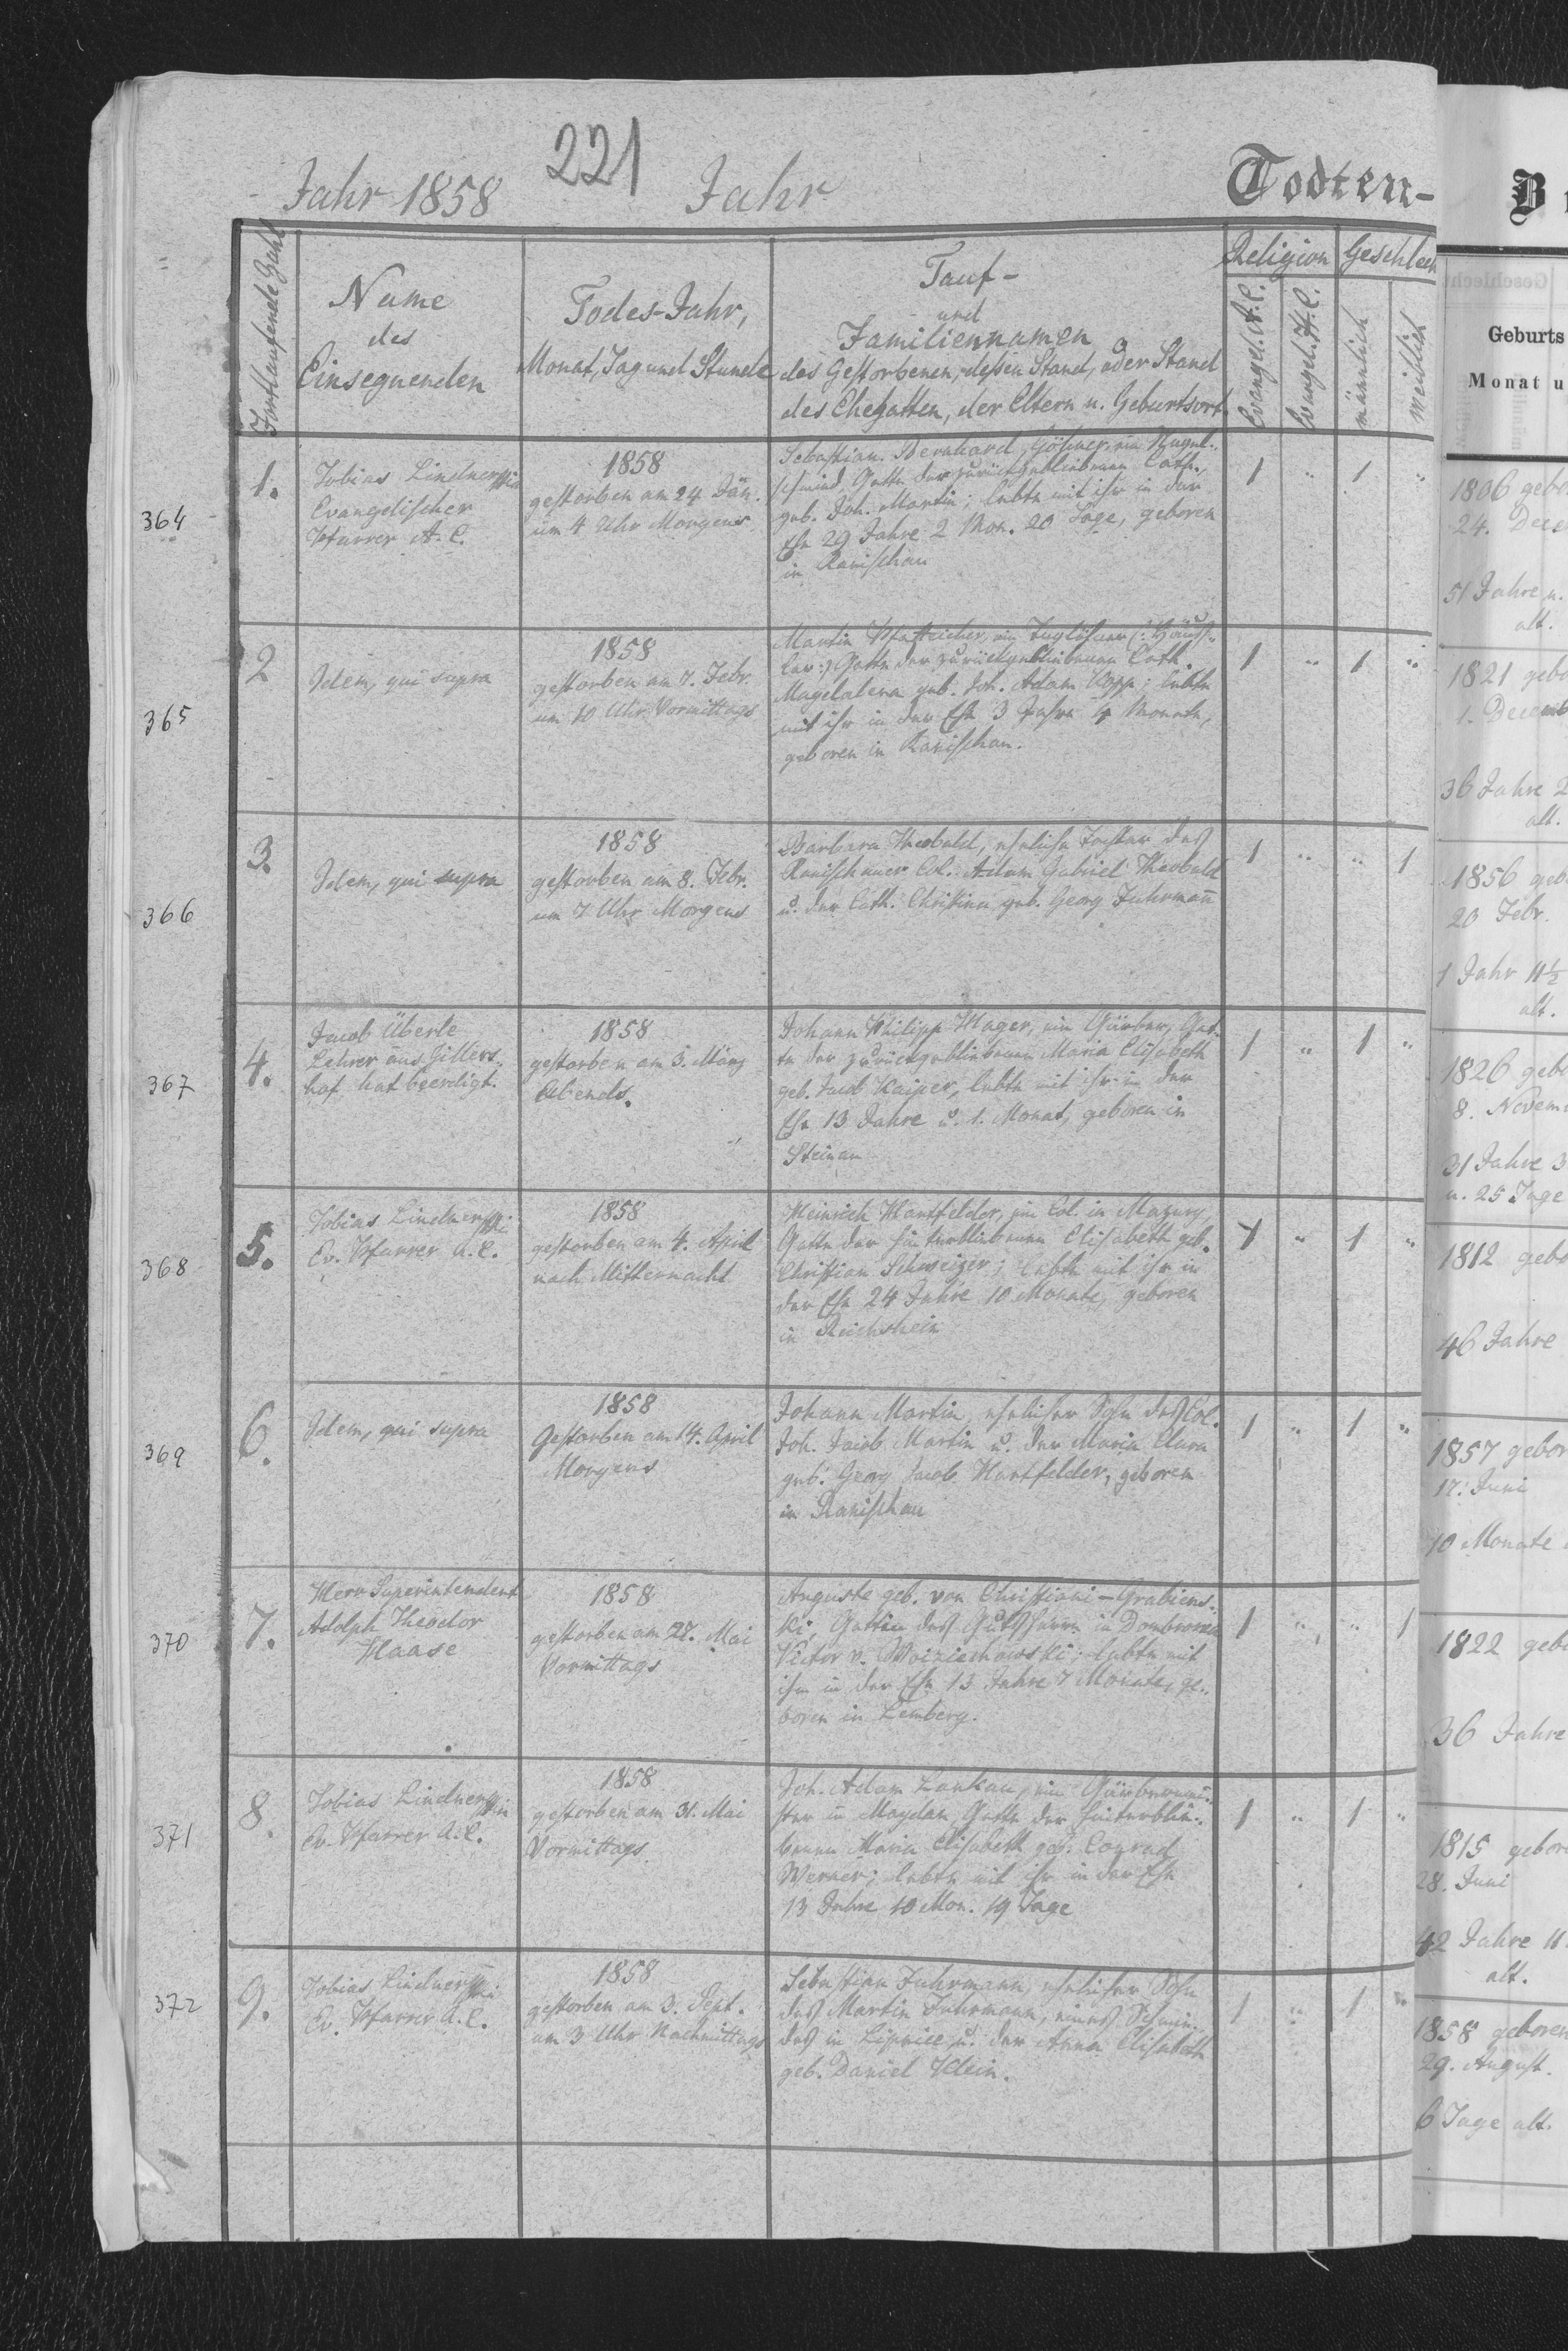 221
Jahr 1858 Jahr Todten-
Fortlaufende Zahl
Name
des
Einsegnenden
Todes-Jahr,
Monat, Tag und Stunde
Tauf-
und
Familiennamen
des Gestorbenen, dessen Stand, oder Stand
des Ehegatten, der Eltern u. Geburtsort
Religion
Evangel. A. C.
Evangel. H. C.
Geschlech
männlich
weiblich
Geburts
Monat u
364
1.
Tobias Lindner
Evangelischer
Pfarrer A. C.
1858
gestorben am 24 Jän.
um 4 Uhr Morgens
Sebastian Bernhard, ein Nagel-
schmied. Gatte der zurückgebliebenen Cath.,
geb. Joh. Martin; lebte mit ihr in der
Ehe 29 Jahre 2 Mon. 20 Tage, geboren
in Ranischau
1 " 1 "
1806 gebo
24. Dece
51 Jahre u.
alt.
365
2
Idem, qui supra
1858
gestorben am 7. Febr.
um 10 Uhr Vormittags
Martin ein Taglöhner (: Häus-
ler :) Gatte der zurückgebliebenen Cath.
Magdalena geb. Joh. Adam Kopp; lebte
mit ihr in der Ehe 3 Jahre 4 Monate,
geboren in Ranischau.
1 " 1 "
1821 gebo
1. Decemb
36 Jahre 2
alt.
366
3.
Idem, qui supra
1858
gestorben am 8. Febr.
um 7 Uhr Morgens
Barbara Theobald, eheliche Tochter des
Ranischauer Col. Adam Gabriel Theobald
u. der Cath. Christina geb. Georg Fuhrmañ
1 " " 1
1856 geb
20 Febr.
1 Jahr 11½
alt.
367
4.
Jacob Überle
Lehrer aus Gillers-
hof hat beerdigt.
1858
gestorben am 3. März
Abends.
Johann Philipp Hager, ein Gärber, Gat-
te der zurückgebliebenen Maria Elisabeth
geb. Jacob Kaiper, lebte mit ihr in der
Ehe 13 Jahre u. 1. Monat, geboren in
Steinau
1 " 1 "
1826 gebo
8. Novem
31 Jahre 3
u. 25 Tage
368
5.
Tobias Lindner
Ev. Pfarrer A. C.
1858
gestorben am 4. April
nach Mitternacht
Heinrich Hartfelder, ein Col. in Mazury,
Gatte der hinterbliebenen Elisabeth geb.
Christian Schweizer; lebte mit ihr in
der Ehe 24 Jahre 10 Monate, geboren
in Reichshein
1 " 1 "
1812 gebo
46 Jahre
369
6.
Idem, qui supra
1858
Gestorben am 14. April
Morgens
Johann Martin, ehelicher Sohn des Col.
Joh. Jacob Martin u. der Maria Clara
geb. Georg Jacob Hartfelder, geboren
in Ranischau
1 " 1 "
1857 gebor
17. Juni
10 Monate
370
7.
Herr Superintendent
Adolph Theodor
Haase
1858
gestorben am 27. Mai
Vormittags
Auguste geb. von Christiani-Grabiens-
ki, Gattin des Gutsherrn in Dombrowa
Victor v. Woiziechowski; lebte mit
ihm in der Ehe 13 Jahre 7 Monate, ge-
boren in Lemberg.
1 " " 1
1822 geb
36 Jahre
371
8.
Tobias Lindner
Ev. Pfarrer A. C.
1858
gestorben am 31. Mai
Vormittags
Joh. Adam Lankau, ein Gärbermei-
ster in Maydan, Gatte der hinterblie-
benen Maria Elisabeth geb. Conrad
Werner; lebte mit ihr in der Ehe
13 Jahre 10 Mon. 19 Tage
1 " 1 "
1815 gebore
28. Juni
42 Jahre 11
alt.
372
9.
Tobias Lindner
Ev. Pfarrer A. C.
1858
gestorben am 3. Sept.
um 3 Uhr Nachmittags
Sebastian Fuhrmann, ehelicher Sohn
des Martin Fuhrmann, eines Schmie-
des in Lipnice u. der Anna Elisabeth
geb. Daniel Klein.
1 " 1 "
1858 geboren
29. August.
6 Tage alt.